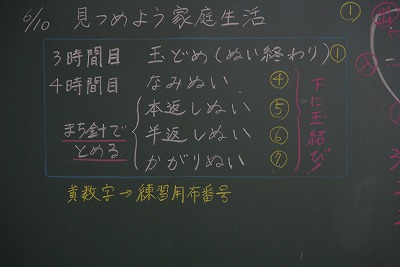 6/10 見つめよう家庭生活
①
3時間目 玉どめ(ぬい終わり)①
4時間目 なみぬい ④
本返しぬい ⑤
半返しぬい ⑥
かがりぬい ⑦
まち針で
とめる
下に玉結び
黄数字→練習用布番号